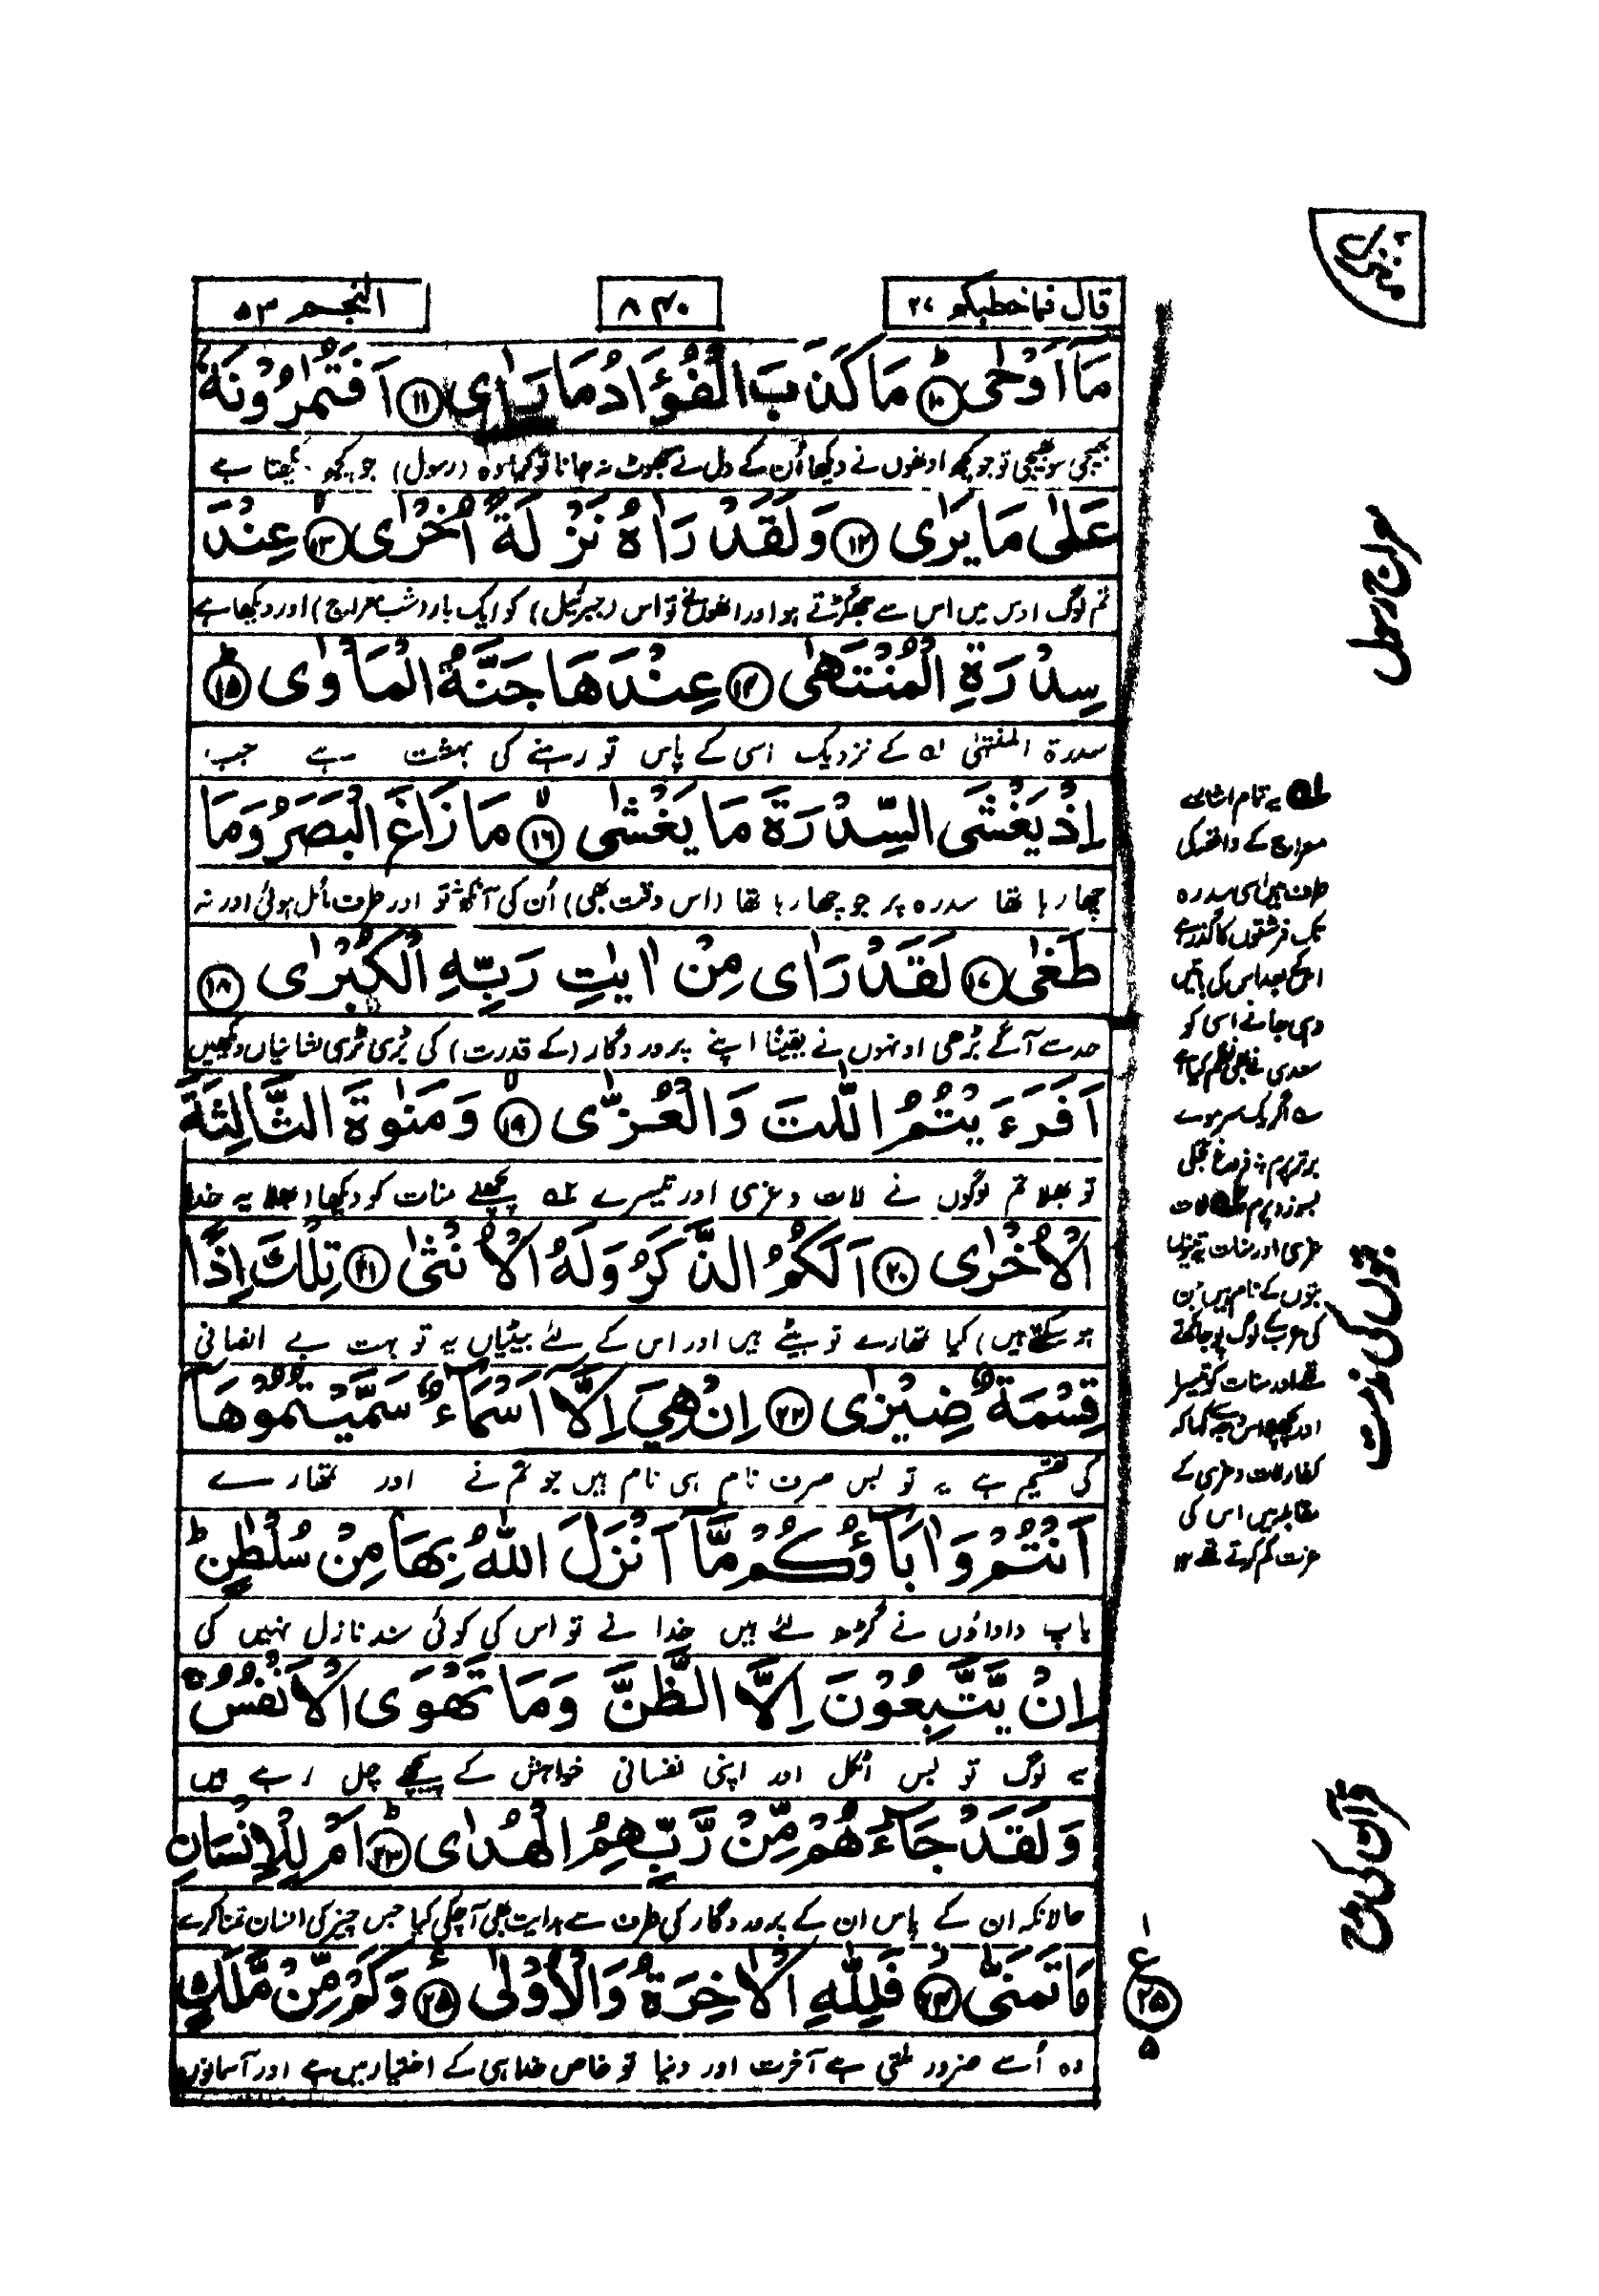 قال فماخطبكم ۲۷
۸۴۰
النجم ۵۳
مَآ اَوْحٰى ؕ ⑩ مَا كَذَبَ الْفُؤَادُ مَا رَاٰى ⑪ اَفَتُمٰرُوْنَهٗ
بھیجی سو بھیجی تو جو کچھ اونھوں نے دیکھا اُن کے دل نے جھوٹ نہ جانا تو کیا وہ (رسول) جو کچھ دیکھتا ہے
عَلٰى مَا يَرٰى ⑫ وَلَقَدْ رَاٰهُ نَزْلَةً اُخْرٰى ۙ ⑬ عِنْدَ
تم لوگ اوس میں اس سے جھگڑتے ہو اور انھوں نے تو اس (جبرئیل) کو ایک بار (شب معراج) اور دیکھا ہے
سِدْرَةِ الْمُنْتَهٰى ⑭ عِنْدَهَا جَنَّةُ الْمَاْوٰى ؕ ⑮
سدرۃ المنتہیٰ ۱ کے نزدیک اسی کے پاس تو رہنے کی بہشت ہے جب
اِذْ يَغْشَى السِّدْرَةَ مَا يَغْشٰى ۙ ⑯ مَا زَاغَ الْبَصَرُ وَمَا
چھا رہا تھا سدرہ پر جو چھا رہا تھا (اس وقت بھی) اُن کی آنکھ نہ تو اور طرف مائل ہوئی اور نہ
طَغٰى ⑰ لَقَدْ رَاٰى مِنْ اٰيٰتِ رَبِّهِ الْكُبْرٰى ⑱
حد سے آگے بڑھی اونہوں نے یقیناً اپنے پروردگار (کے قدرت) کی بڑی بڑی نشانیاں دیکھیں
اَفَرَءَيْتُمُ اللّٰتَ وَالْعُزّٰى ۙ ⑲ وَمَنٰوةَ الثَّالِثَةَ
تو بھلا تم لوگوں نے لات و عزیٰ اور تیسرے ۲ پچھلے منات کو دیکھا (بھلا یہ خدا
الْاُخْرٰى ⑳ اَلَكُمُ الذَّكَرُ وَلَهُ الْاُنْثٰى ㉑ تِلْكَ اِذًا
ہو سکتے ہیں) کیا تمھارے تو بیٹے ہیں اور اس کے لئے بیٹیاں یہ تو بہت بے انصافی
قِسْمَةٌ ضِيْزٰى ㉒ اِنْ هِيَ اِلَّآ اَسْمَآءٌ سَمَّيْتُمُوْهَآ
کی تقسیم ہے یہ تو بس صرف نام ہی نام ہیں جو تم نے اور تمھارے
اَنْتُمْ وَاٰبَآؤُكُمْ مَّآ اَنْزَلَ اللّٰهُ بِهَا مِنْ سُلْطٰنٍ ؕ
باپ داداؤں نے گڑھ لئے ہیں خدا نے تو اس کی کوئی سند نازل نہیں کی
اِنْ يَّتَّبِعُوْنَ اِلَّا الظَّنَّ وَمَا تَهْوَى الْاَنْفُسُ ۚ
یہ لوگ تو بس اٹکل اور اپنی نفسانی خواہش کے پیچھے چل رہے ہیں
وَلَقَدْ جَآءَهُمْ مِّنْ رَّبِّهِمُ الْهُدٰى ؕ ㉓ اَمْ لِلْاِنْسَانِ
حالانکہ ان کے پاس ان کے پروردگار کی طرف سے ہدایت بھی آچکی کیا جس چیز کی انسان تمنا کرے
مَا تَمَنّٰى ㉔ فَلِلّٰهِ الْاٰخِرَةُ وَالْاُوْلٰى ۧ ㉕ وَكَمْ مِّنْ مَّلَكٍ
وہ اُسے ضرور ملتی ہے آخرت اور دنیا تو خاص خدا ہی کے اختیار میں ہے اور آسمانوں
معراج رسول
۱ یہ تمام اشارے
معراج کے واقعہ کی
طرف ہیں اسی سدرہ
تک فرشتوں کا گذر ہے
دی جانے اسی کو
سعدی نے بھی نظم کیا ہے
اگر یک سر موے
برتر پرم فروغ تجلی
بسوزد پرم ۲ لات
عزی اور منات یہ تینوں
بتوں کے نام ہیں جن
کی عرب کے لوگ پوجا کرتے
تھے اور منات کو تیسرا
کفار لات و عزی کے
مقابلہ میں اس کی
عزت کم کرتے تھے ۱۲
بتوں کی مذمت
قرآن کی مدح
۱
ع
۲۵
۵